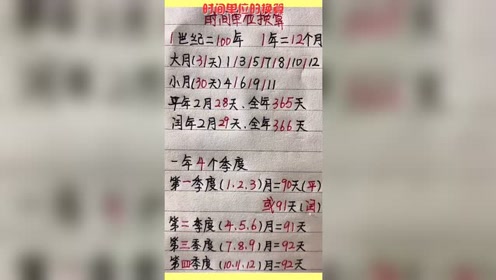 时间单位的换算
时间单位换算
1世纪=100年 1年=12个月
大月(31天)1/3/5/7/8/10/12
小月(30天)4/6/9/11
平年2月28天.全年365天
闰年2月29天.全年366天
一年4个季度
第一季度(1.2.3)月=90天(平)
或91天(闰)
第二季度(4.5.6)月=91天
第三季度(7.8.9)月=92天
第四季度(10.11.12)月=92天